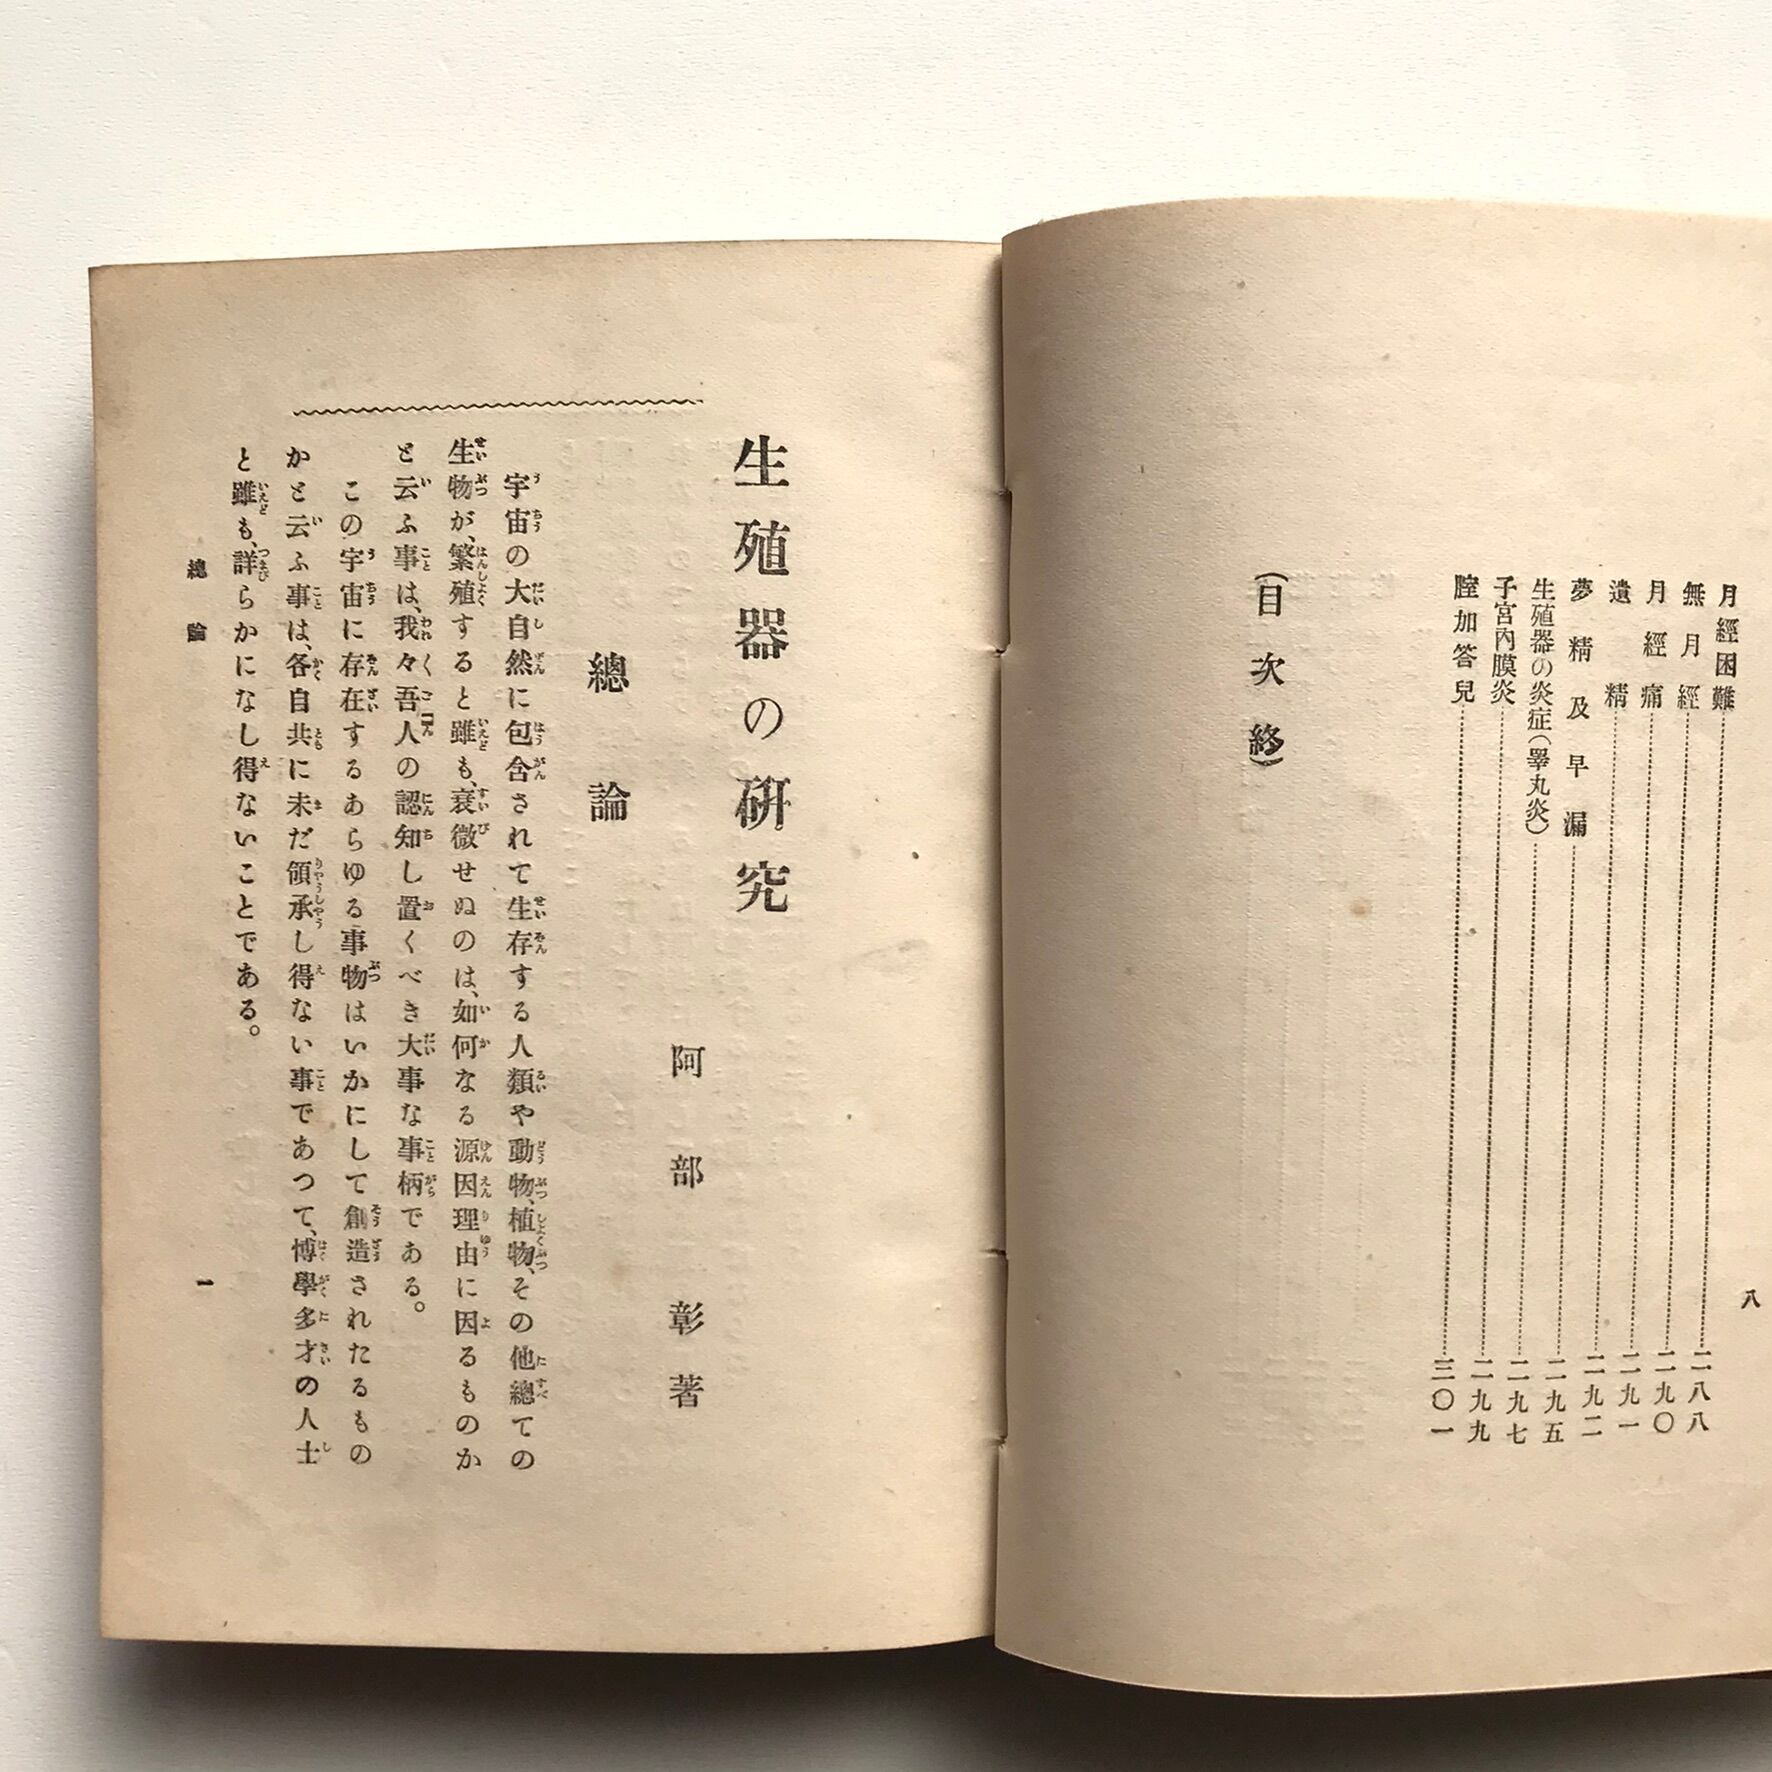 八
月經困難 二八八
無月經 二九〇
月經痛 二九一
遺精 二九二
夢精及早漏 二九五
生殖器の炎症(睾丸炎) 二九七
子宮內膜炎 二九九
腟加答兒 三〇一
(目次終)
生殖器の硏究
阿部彰著
總論
宇宙の大自然に包含されて生存する人類や動物、植物、その他總ての
生物が、繁殖すると雖も、衰微せぬのは、如何なる源因理由に因るものか
と云ふ事は、我々吾人の認知し置くべき大事な事柄である。
この宇宙に存在するあらゆる事物はいかにして創造されたるもの
かと云ふ事は、各自共に未だ領承し得ない事であつて、博學多才の人士
と雖も、詳らかになし得ないことである。
總論
一